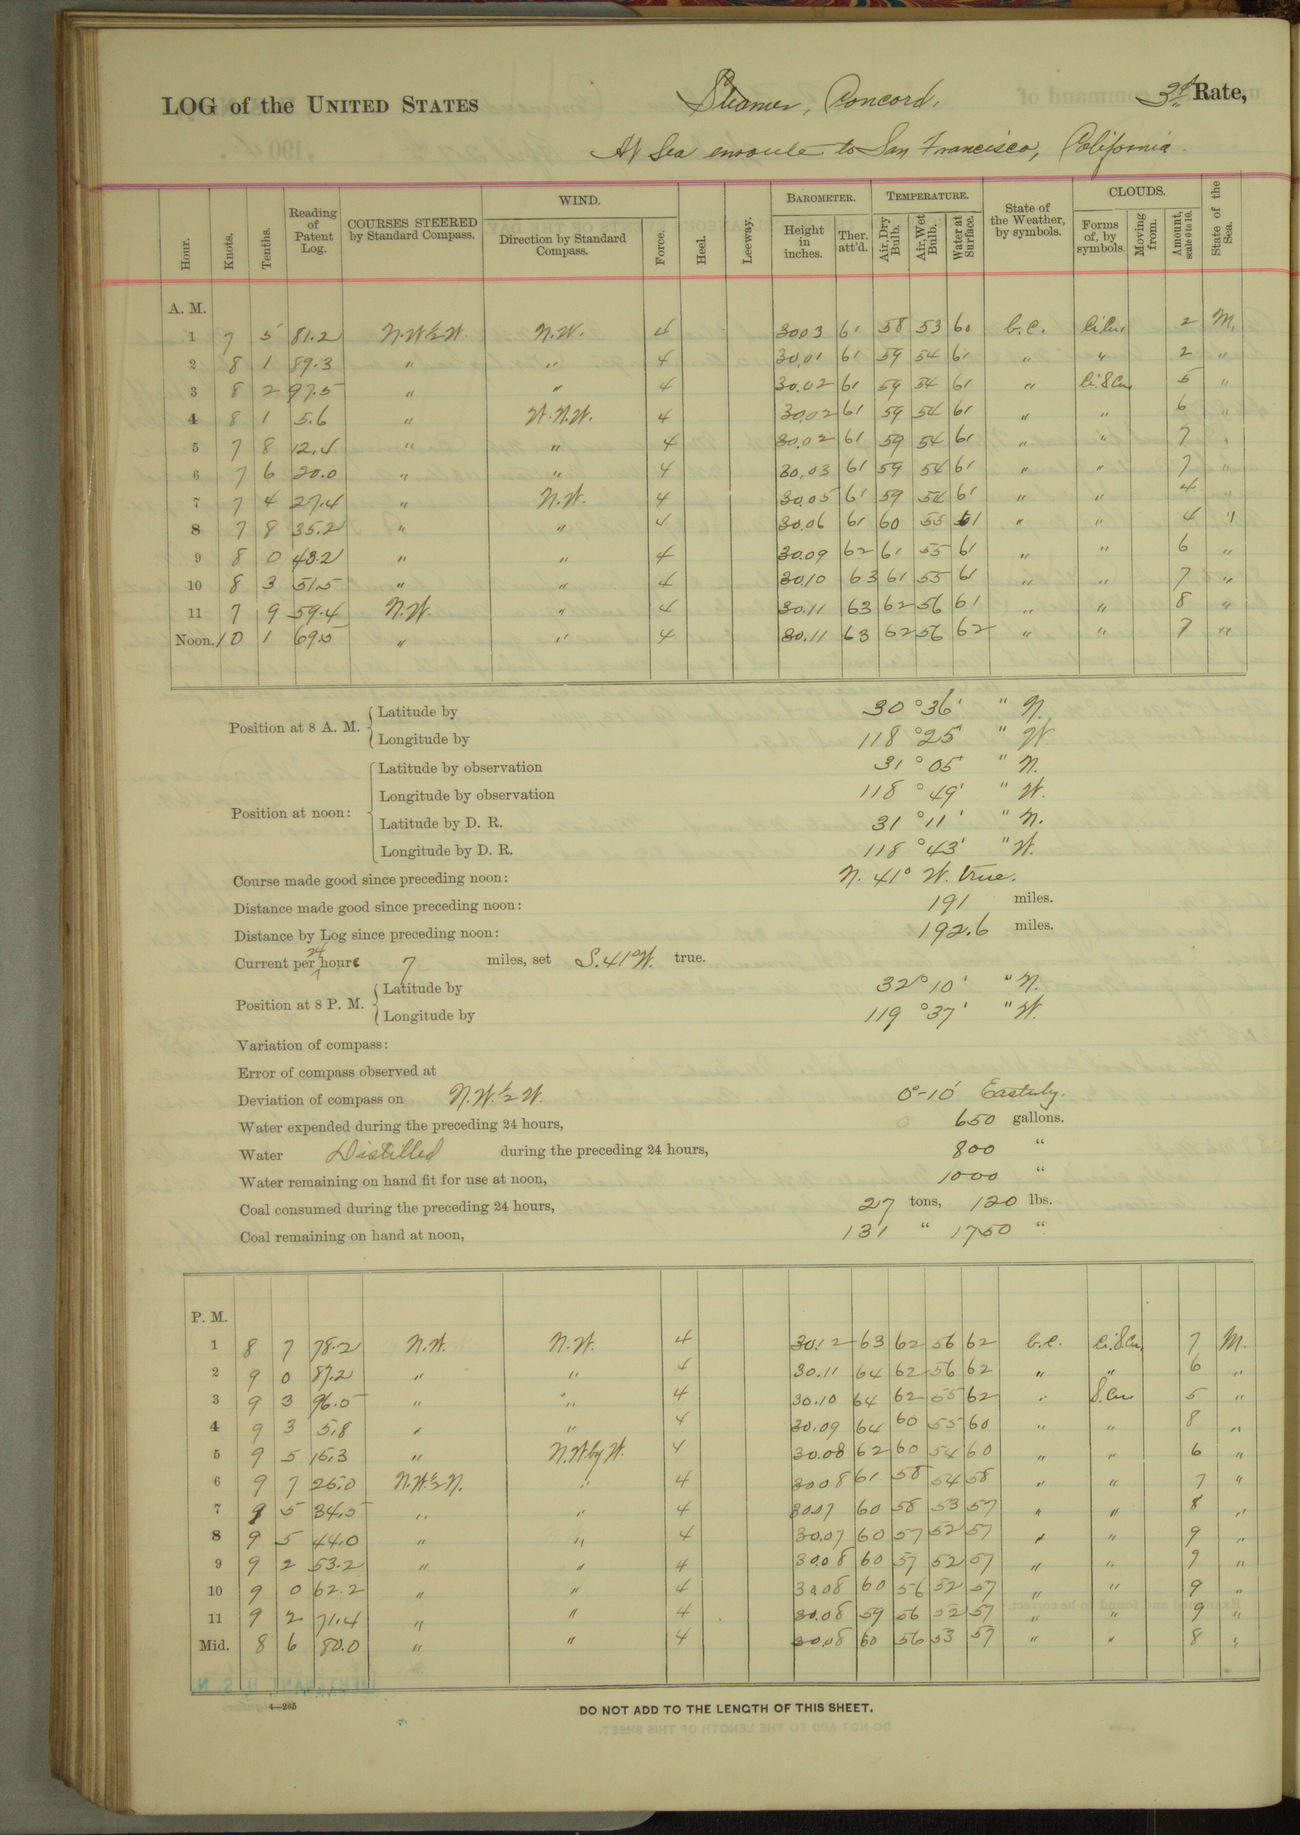 LOG of the UNITED STATES Steamer, Concord, 3d Rate,
At Sea enroute to San Francisco, California.
Hour. Knots. Tenths. Reading of Patent Log. COURSES STEERED by Standard Compass. WIND. Direction by Standard Compass. Force. Heel. Leeway. BAROMETER. Height in inches. Ther. att'd. TEMPERATURE. Air, Dry Bulb. Air, Wet Bulb. Water at Surface. State of the Weather, by symbols. CLOUDS. Forms of, by symbols. Moving from. Amount, scale 0 to 10. State of the Sea.
A. M.
1 7 5 81.2 N.W.½W. N.W. 4 30.03 61 58 53 60 b.c. Ci.Cu. 2 M.
2 8 1 89.3 " " 4 30.01 61 59 54 61 " " 2 "
3 8 2 97.5 " " 4 30.02 61 59 54 61 " Ci.S.Cu. 5 "
4 8 1 5.6 " W.N.W. 4 30.02 61 59 54 61 " " 6 "
5 7 8 12.4 " " 4 30.02 61 59 54 61 " " 7 "
6 7 6 20.0 " " 4 30.03 61 59 54 61 " " 7 "
7 7 4 27.4 " N.W. 4 30.05 61 59 54 61 " " 4 "
8 7 8 35.2 " " 4 30.06 61 60 55 61 " " 4 "
9 8 0 43.2 " " 4 30.09 62 61 55 61 " " 6 "
10 8 3 51.5 " " 4 30.10 63 61 55 61 " " 7 "
11 7 9 59.4 N.W. " 4 30.11 63 62 56 61 " " 8 "
Noon. 10 1 69.5 " " 4 30.11 63 62 56 62 " " 7 "
Position at 8 A. M. Latitude by 30 ° 36' " N.
Longitude by 118 ° 25' " W.
Position at noon: Latitude by observation 31 ° 05' " N.
Longitude by observation 118 ° 49' " W.
Latitude by D. R. 31 ° 11' " N.
Longitude by D. R. 118 ° 43' " W.
Course made good since preceding noon: N. 41° W. true.
Distance made good since preceding noon: 191 miles.
Distance by Log since preceding noon: 192.6 miles.
Current per 24 hours 7 miles, set S.41°W. true.
Position at 8 P. M. Latitude by 32° 10' " N.
Longitude by 119 ° 37' " W.
Variation of compass:
Error of compass observed at
Deviation of compass on N.W.½W. 0°-10' Easterly.
Water expended during the preceding 24 hours, 650 gallons.
Water Distilled during the preceding 24 hours, 800 "
Water remaining on hand fit for use at noon, 1000 "
Coal consumed during the preceding 24 hours, 27 tons, 120 lbs.
Coal remaining on hand at noon, 131 " 1750 "
P. M.
1 8 7 78.2 N.W. N.W. 4 30.12 63 62 56 62 b.c. Ci.S.Cu. 7 M.
2 9 0 87.2 " " 4 30.11 64 62 56 62 " " 6 "
3 9 3 96.5 " " 4 30.10 64 62 55 62 " S.Cu. 5 "
4 9 3 5.8 " " 4 30.09 64 60 55 60 " " 8 "
5 9 5 15.3 " N.W.by W. 4 30.08 62 60 54 60 " " 6 "
6 9 7 25.0 N.W.½N. " 4 30.08 61 58 54 58 " " 7 "
7 9 5 34.5 " " 4 30.07 60 58 53 57 " " 8 "
8 9 5 44.0 " " 4 30.07 60 57 52 57 " " 9 "
9 9 2 53.2 " " 4 30.08 60 57 52 57 " " 9 "
10 9 0 62.2 " " 4 30.08 60 56 52 57 " " 9 "
11 9 2 71.4 " " 4 30.08 59 56 52 57 " " 9 "
Mid. 8 6 80.0 " " 4 30.08 60 56 53 57 " " 8 "
4—265 DO NOT ADD TO THE LENGTH OF THIS SHEET.